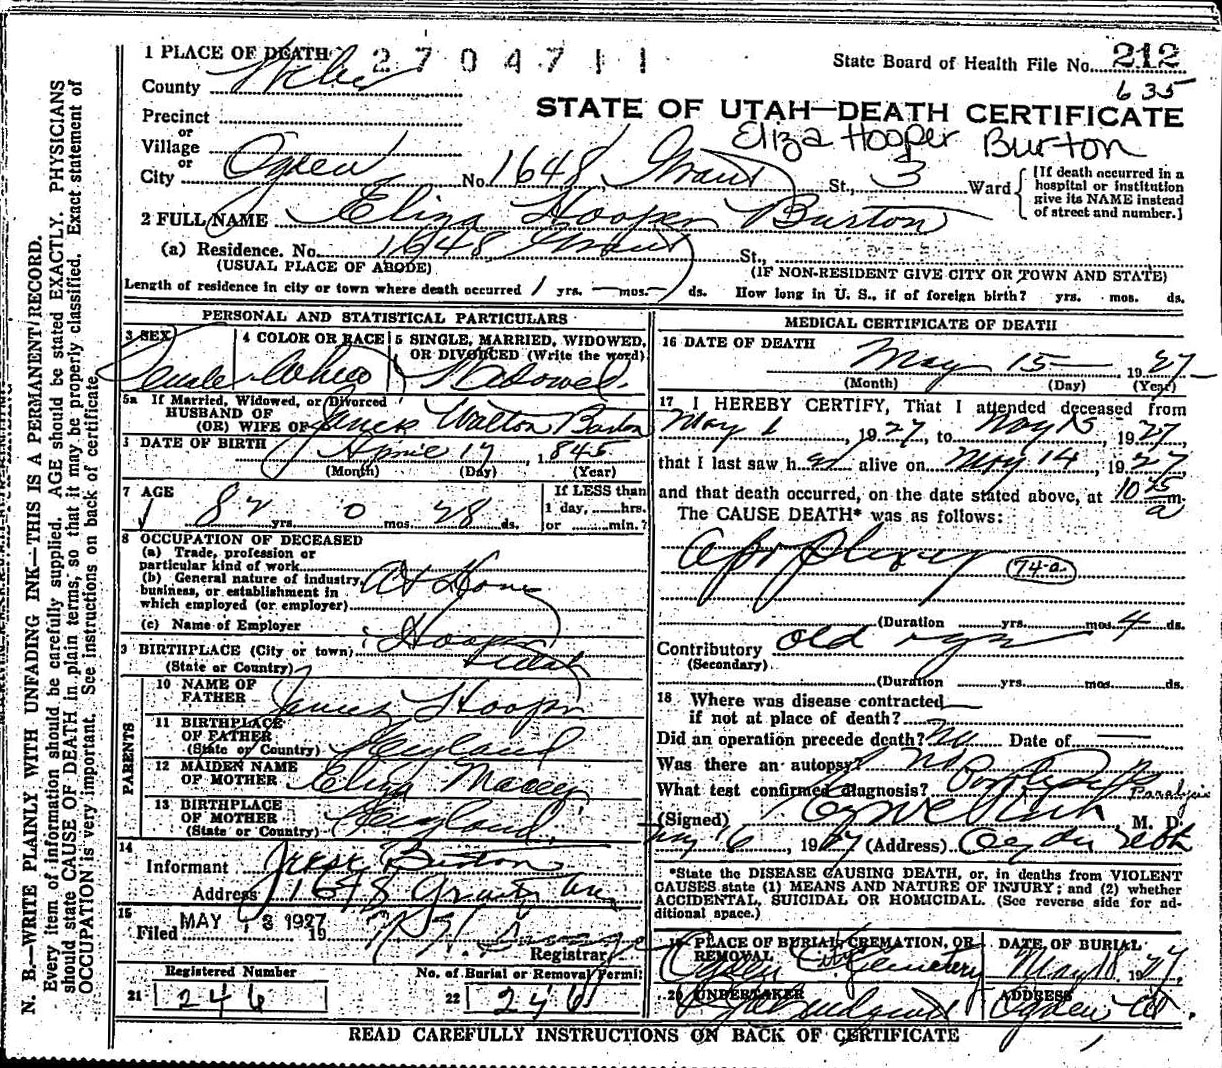 1 PLACE OF DEATH 2704711
State Board of Health File No. 212
County Weber
635
STATE OF UTAH—DEATH CERTIFICATE
Precinct
or
Village
Eliza Hooper Burton
or
City Ogden No. 1648 Grant St., 3 Ward
[If death occurred in a
hospital or institution
give its NAME instead
of street and number.]
2 FULL NAME Eliza Hooper Burton
(a) Residence. No. 1648 Grant St.,
(USUAL PLACE OF ABODE) (IF NON-RESIDENT GIVE CITY OR TOWN AND STATE)
Length of residence in city or town where death occurred 1 yrs. — mos. — ds. How long in U. S., if of foreign birth? yrs. mos. ds.
PERSONAL AND STATISTICAL PARTICULARS
3 SEX 4 COLOR OR RACE 5 SINGLE, MARRIED, WIDOWED,
OR DIVORCED (Write the word)
Female White Widowed
5a If Married, Widowed, or Divorced
HUSBAND OF
(OR) WIFE OF James Walton Burton
DATE OF BIRTH April 17 1845
(Month) (Day) (Year)
7 AGE If LESS than
82 yrs. 0 mos. 28 ds. 1 day, hrs.
or min.?
8 OCCUPATION OF DECEASED
(a) Trade, profession or
particular kind of work
(b) General nature of industry, At Home
business, or establishment in
which employed (or employer)
(c) Name of Employer
9 BIRTHPLACE (City or town) Hooper
(State or Country) Utah
PARENTS
10 NAME OF
FATHER James Hooper
11 BIRTHPLACE
OF FATHER England
(State or Country)
12 MAIDEN NAME
OF MOTHER Eliza
13 BIRTHPLACE
OF MOTHER England
(State or Country)
14
Informant Burton
Address 1648 Grant Ave
15
Filed MAY 18 1927 19
Registrar
Registered Number No. of Burial or Removal Permit
21 246 22 246
MEDICAL CERTIFICATE OF DEATH
16 DATE OF DEATH
May 15 1927
(Month) (Day) (Year)
17 I HEREBY CERTIFY, That I attended deceased from
May 1, 1927, to May 15, 1927
that I last saw her alive on May 14, 1927
and that death occurred, on the date stated above, at 10 a m.
The CAUSE DEATH* was as follows:
Apoplexy 74-a.
(Duration yrs. mos. 4 ds.
Contributory old age
(Secondary)
(Duration yrs. mos. ds.
18 Where was disease contracted
if not at place of death?
Did an operation precede death? No Date of
Was there an autopsy? No
What test confirmed diagnosis? Paralysis
(Signed) M. D.
, 1927 (Address) Ogden Utah
*State the DISEASE CAUSING DEATH, or, in deaths from VIOLENT
CAUSES state (1) MEANS AND NATURE OF INJURY; and (2) whether
ACCIDENTAL, SUICIDAL OR HOMICIDAL. (See reverse side for ad-
ditional space.)
19 PLACE OF BURIAL, CREMATION, OR DATE OF BURIAL
REMOVAL
Ogden City Cemetery May 18, 1927
20 UNDERTAKER ADDRESS
Ogden Ut.
READ CAREFULLY INSTRUCTIONS ON BACK OF CERTIFICATE
N. B.—WRITE PLAINLY WITH UNFADING INK—THIS IS A PERMANENT RECORD.
Every item of information should be carefully supplied. AGE should be stated EXACTLY. PHYSICIANS
should state CAUSE OF DEATH in plain terms, so that it may be properly classified. Exact statement of
OCCUPATION is very important. See instructions on back of certificate.